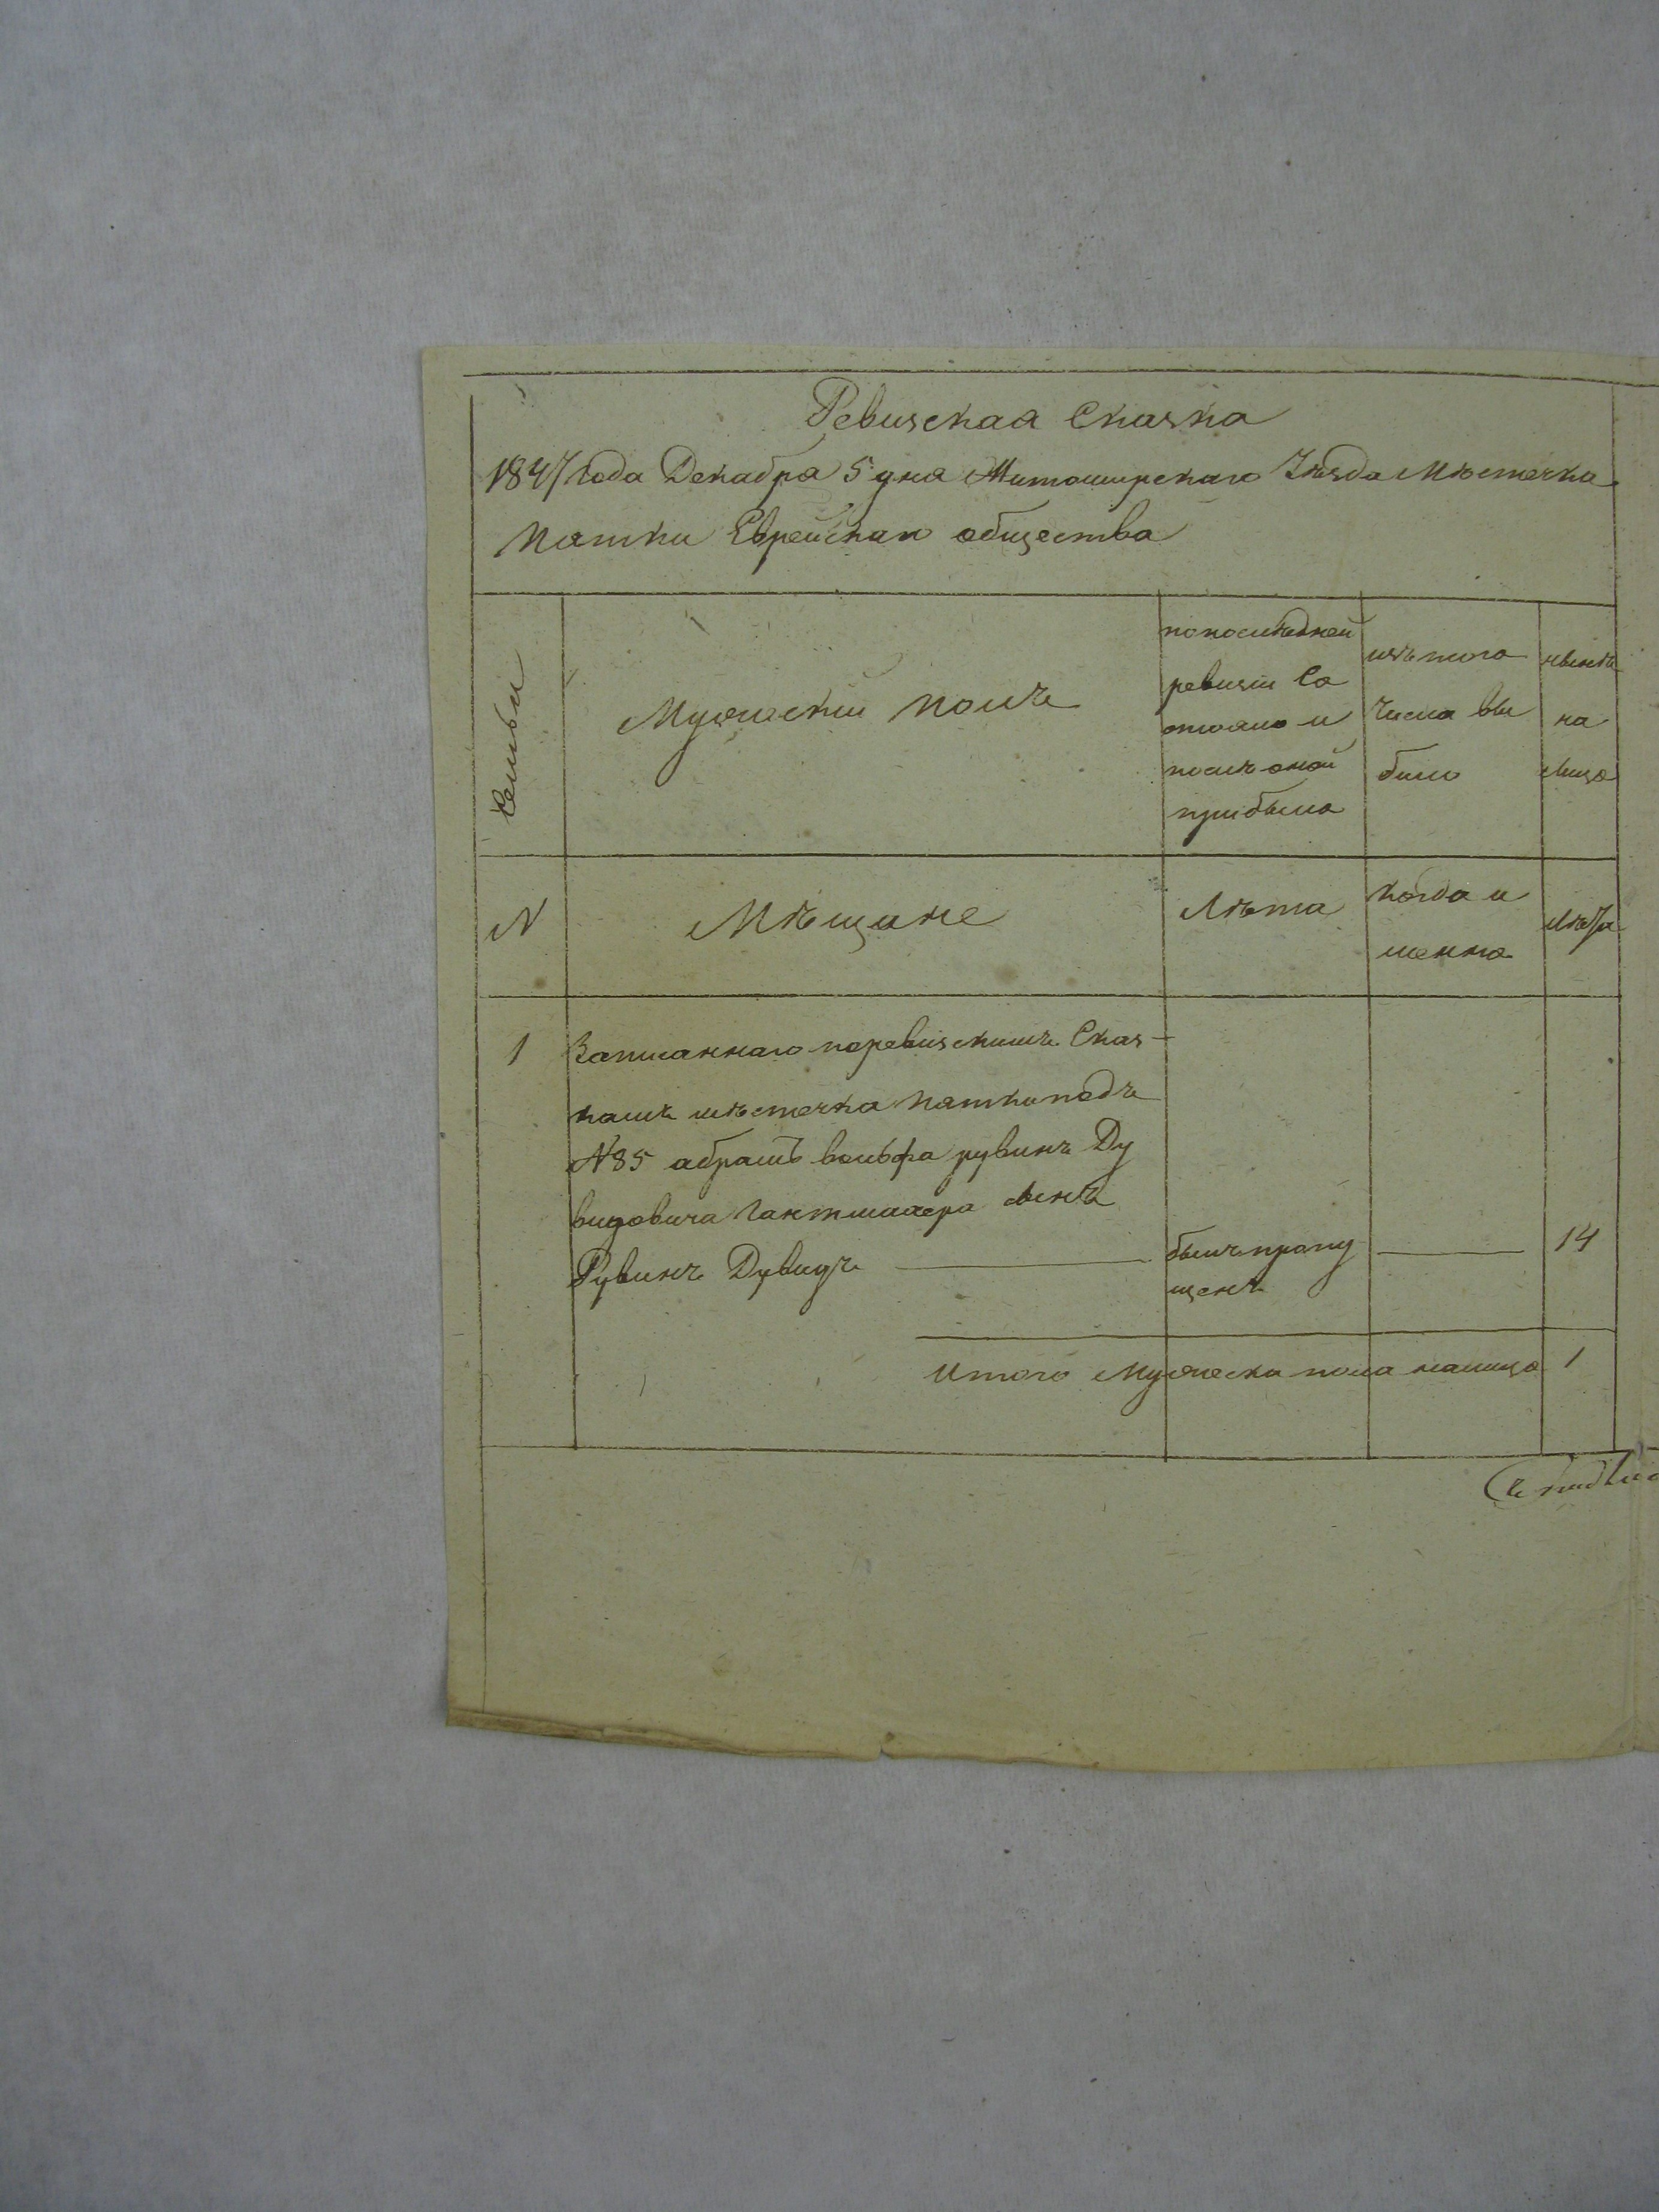 Ревизская Сказка
1847 Года Декабря 5 дня Житомирскаго Уѣзда Мѣстечка
Пятки Еврейскаго общества
Семьи
Мужескій полъ
попослѣдней
ревизіи Со
стояло и
послѣ оной
прибыло
изъ того
числа вы
было
нынѣ
на
лицо
N
Мѣщане
Лѣта
когда и
менно
Лѣта
1 Записаннаго поревизскимъ Сказ-
камъ мѣстечка Пятки подъ
N 85 абрамъ вольфа рувинъ Ду
видовича Гантмахера сынъ
Рувинъ Дувидъ былъ пропу 14
щенъ
Итого Мужеска пола налицо 1